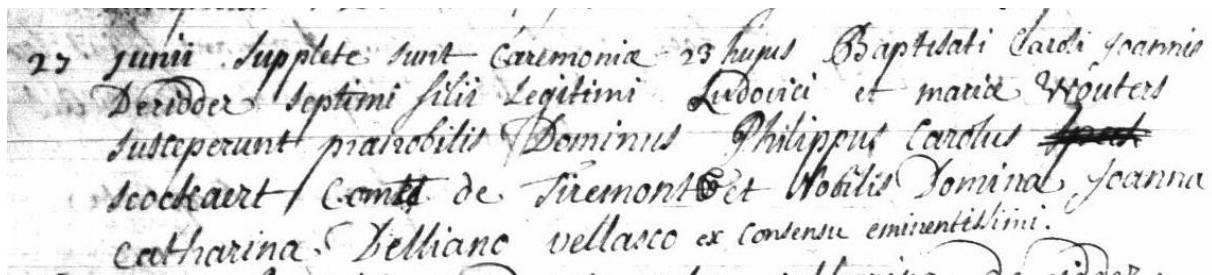 27 junii supplete sunt Caremoniæ 23 hujus Baptisati Caroli Joannis
Deridder septimi filii Legitimi Ludovici et mariæ Wouters
susceperunt prænobilis Dominus Philippus Carolus
scockaert Comte de Tiremont et Nobilis Domina Joanna
Catharina Delliano vellasco ex consensu eminentissimi.
de ridder